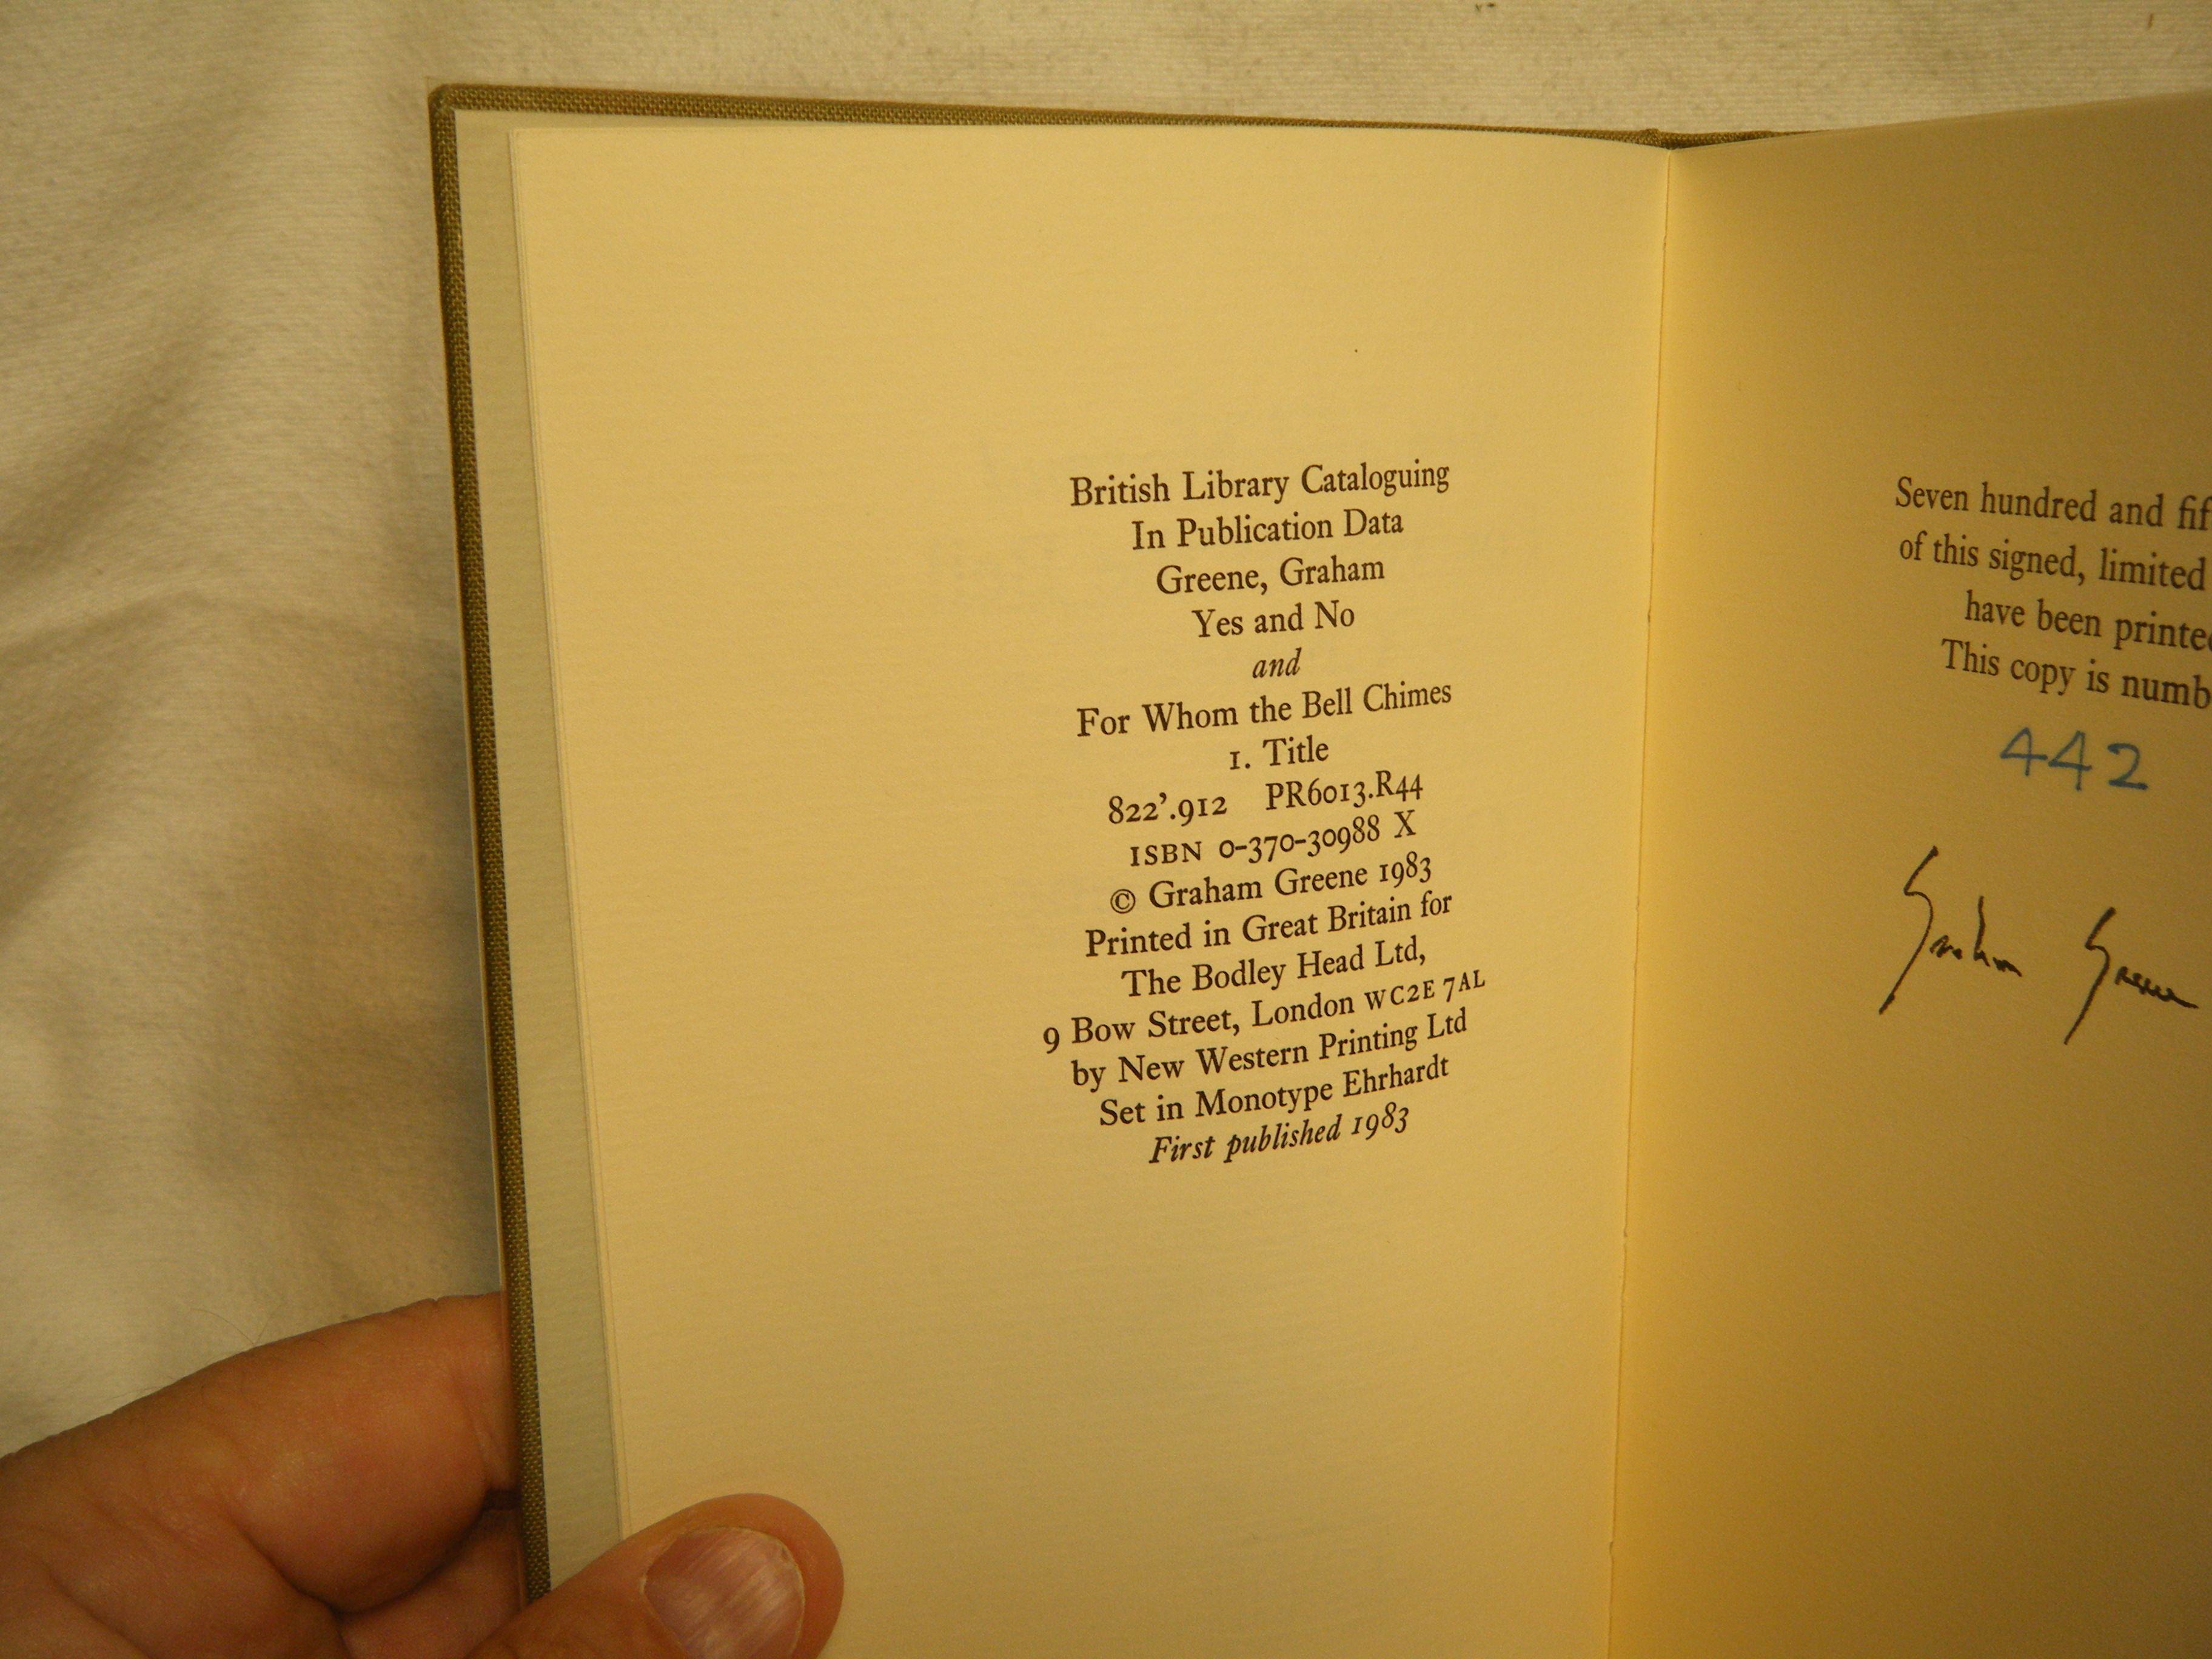 British Library Cataloguing
In Publication Data
Greene, Graham
Yes and No
and
For Whom the Bell Chimes
1. Title
822'.912 PR6013.R44
ISBN 0-370-30988 X
© Graham Greene 1983
Printed in Great Britain for
The Bodley Head Ltd,
9 Bow Street, London WC2E 7AL
by New Western Printing Ltd
Set in Monotype Ehrhardt
First published 1983
Seven hundred and fif
of this signed, limited
have been printe
This copy is numb
442
Graham Greene